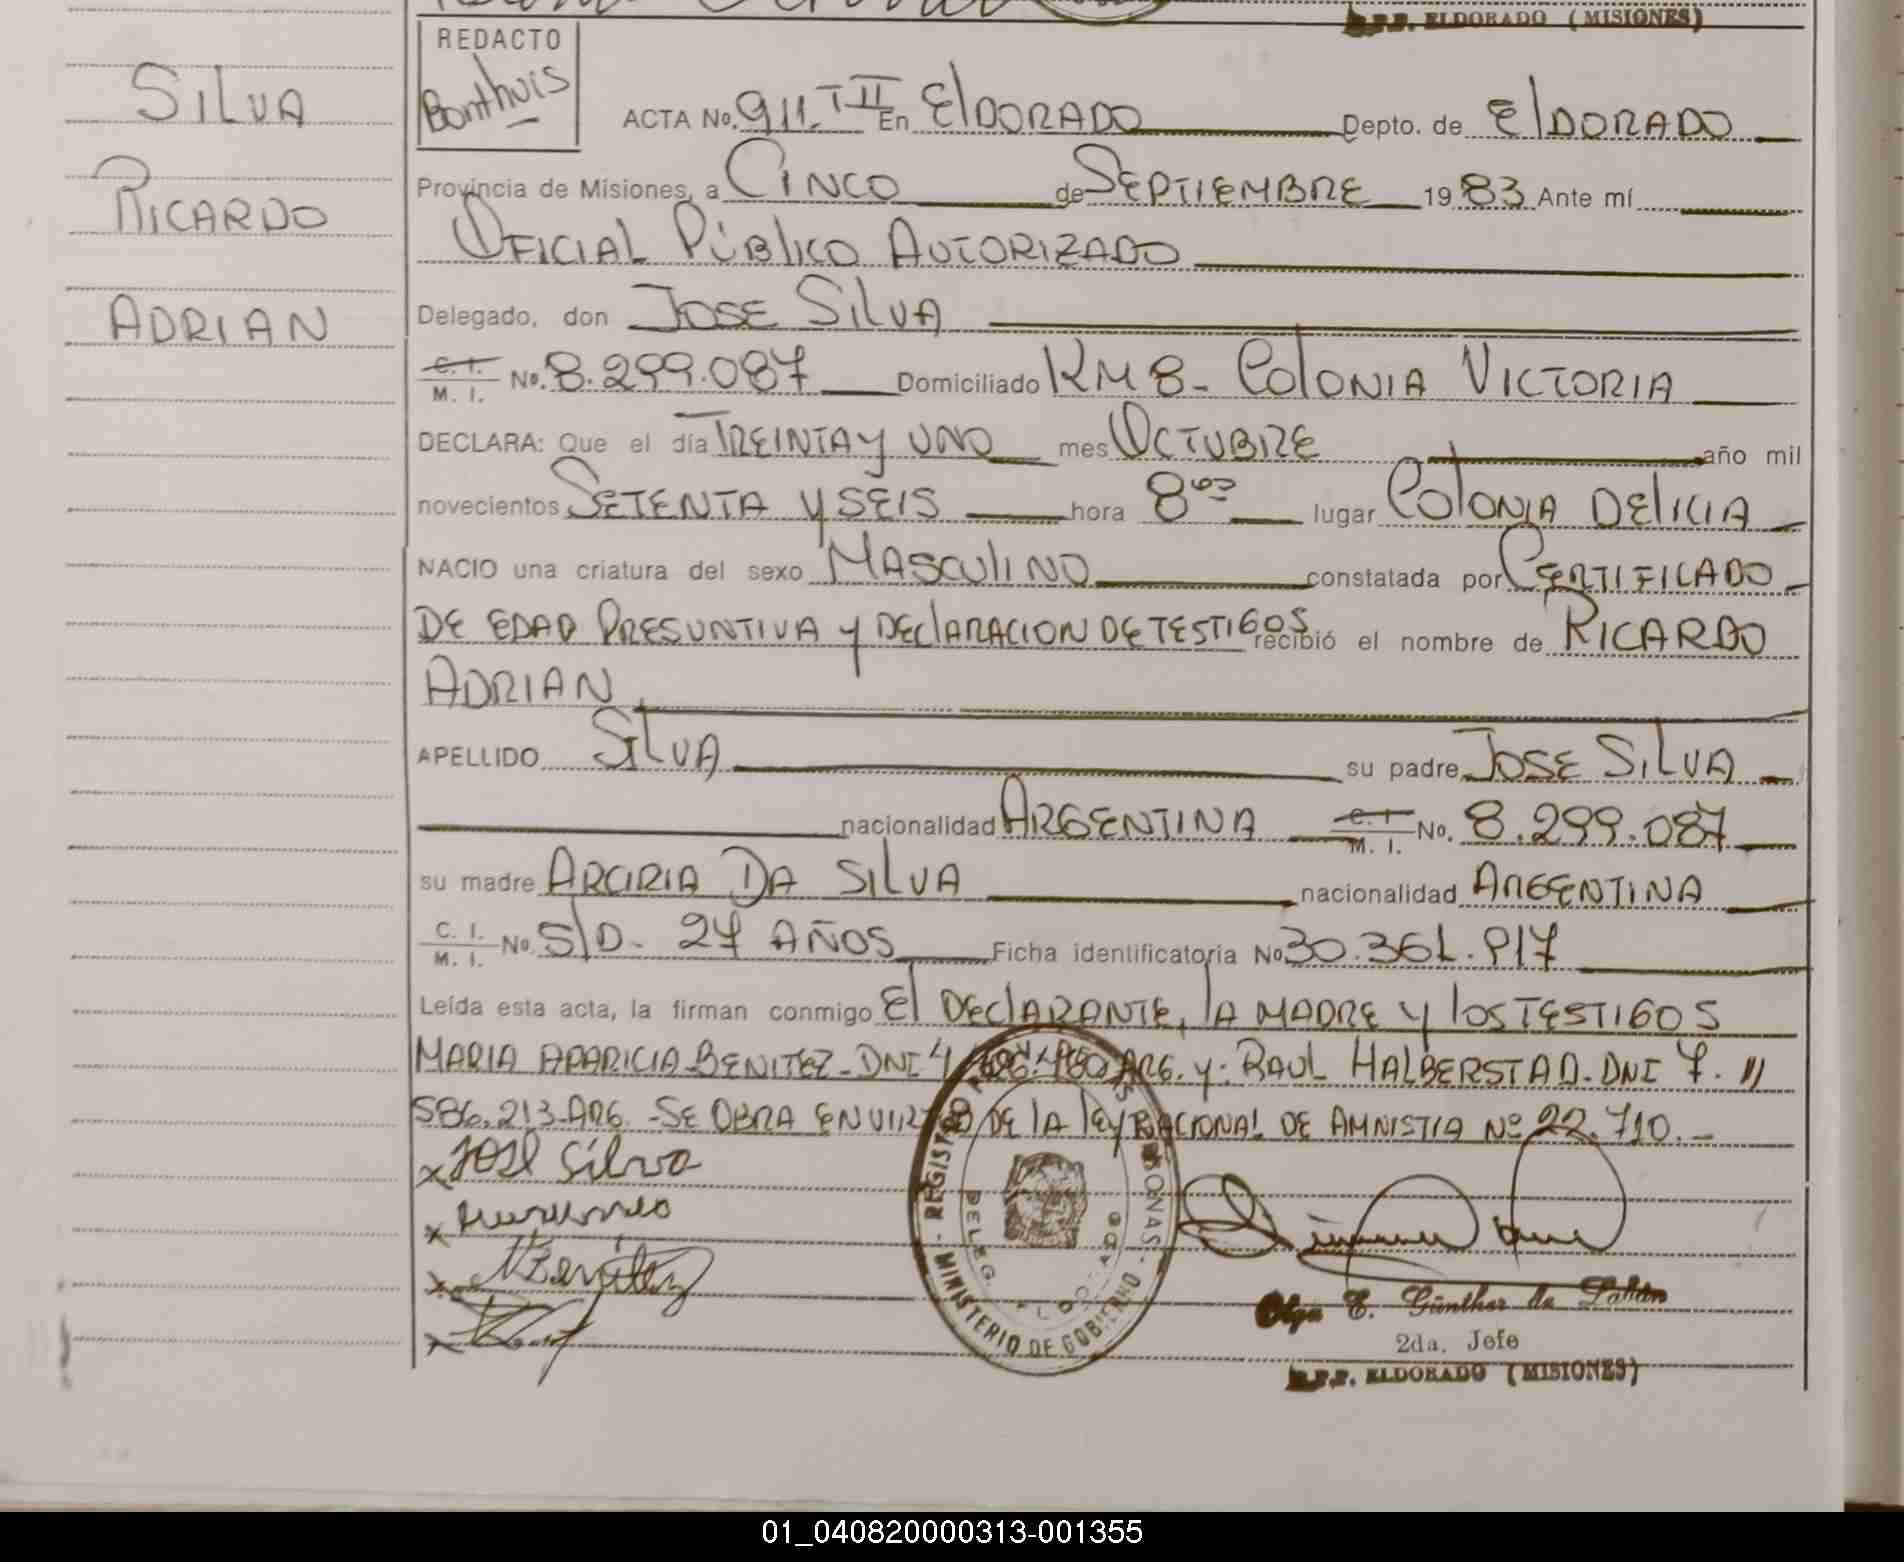 B.P.P. ELDORADO (MISIONES)
SILVA
RICARDO
ADRIAN
REDACTO
Bonthuis
ACTA No. 911. T II En ElDORADO Depto. de ElDORADO
Provincia de Misiones, a CINCO de SEPTIEMBRE 1983 Ante mí
OFICIAL PÚBlICO AUTORIZADO
Delegado, don JOSE SILVA
C. I. / M. I. No. 8.299.087 Domiciliado KM 8 - COLONIA VICTORIA
DECLARA: Que el día TREINTA Y UNO mes OCTUBRE año mil
novecientos SETENTA Y SEIS hora 8 lugar COLONIA DELICIA
NACIO una criatura del sexo MASCULINO constatada por CERTIFICADO
DE EDAD PRESUNTIVA Y DECLARACION DE TESTIGOS recibió el nombre de RICARDO
ADRIAN
APELLIDO SILVA su padre JOSE SILVA
nacionalidad ARGENTINA C. I. / M. I. No. 8.299.087
su madre ARCIRIA DA SILVA nacionalidad ARGENTINA
C. I. / M. I. No. S/D. 27 AÑOS Ficha identificatoria No 30.361.917
Leída esta acta, la firman conmigo El DECLARANTE, LA MADRE Y LOS TESTIGOS
MARIA APARICIA BENITEZ - DNI ARG. Y: RAUL HALBERSTAD. DNI 7. "
586.213-ARG. - SE OBRA EN VIRTUD DE LA LEY NACIONAL DE AMNISTIA Nº 22.710. -
x José Silva
x
x Benitez
x
MINISTERIO DE GOBIERNO - REGISTRO PERSONAS
DELEG. ELDORADO
Olga E. Günther de
2da. Jefe
ELDORADO (MISIONES)
01_040820000313-001355